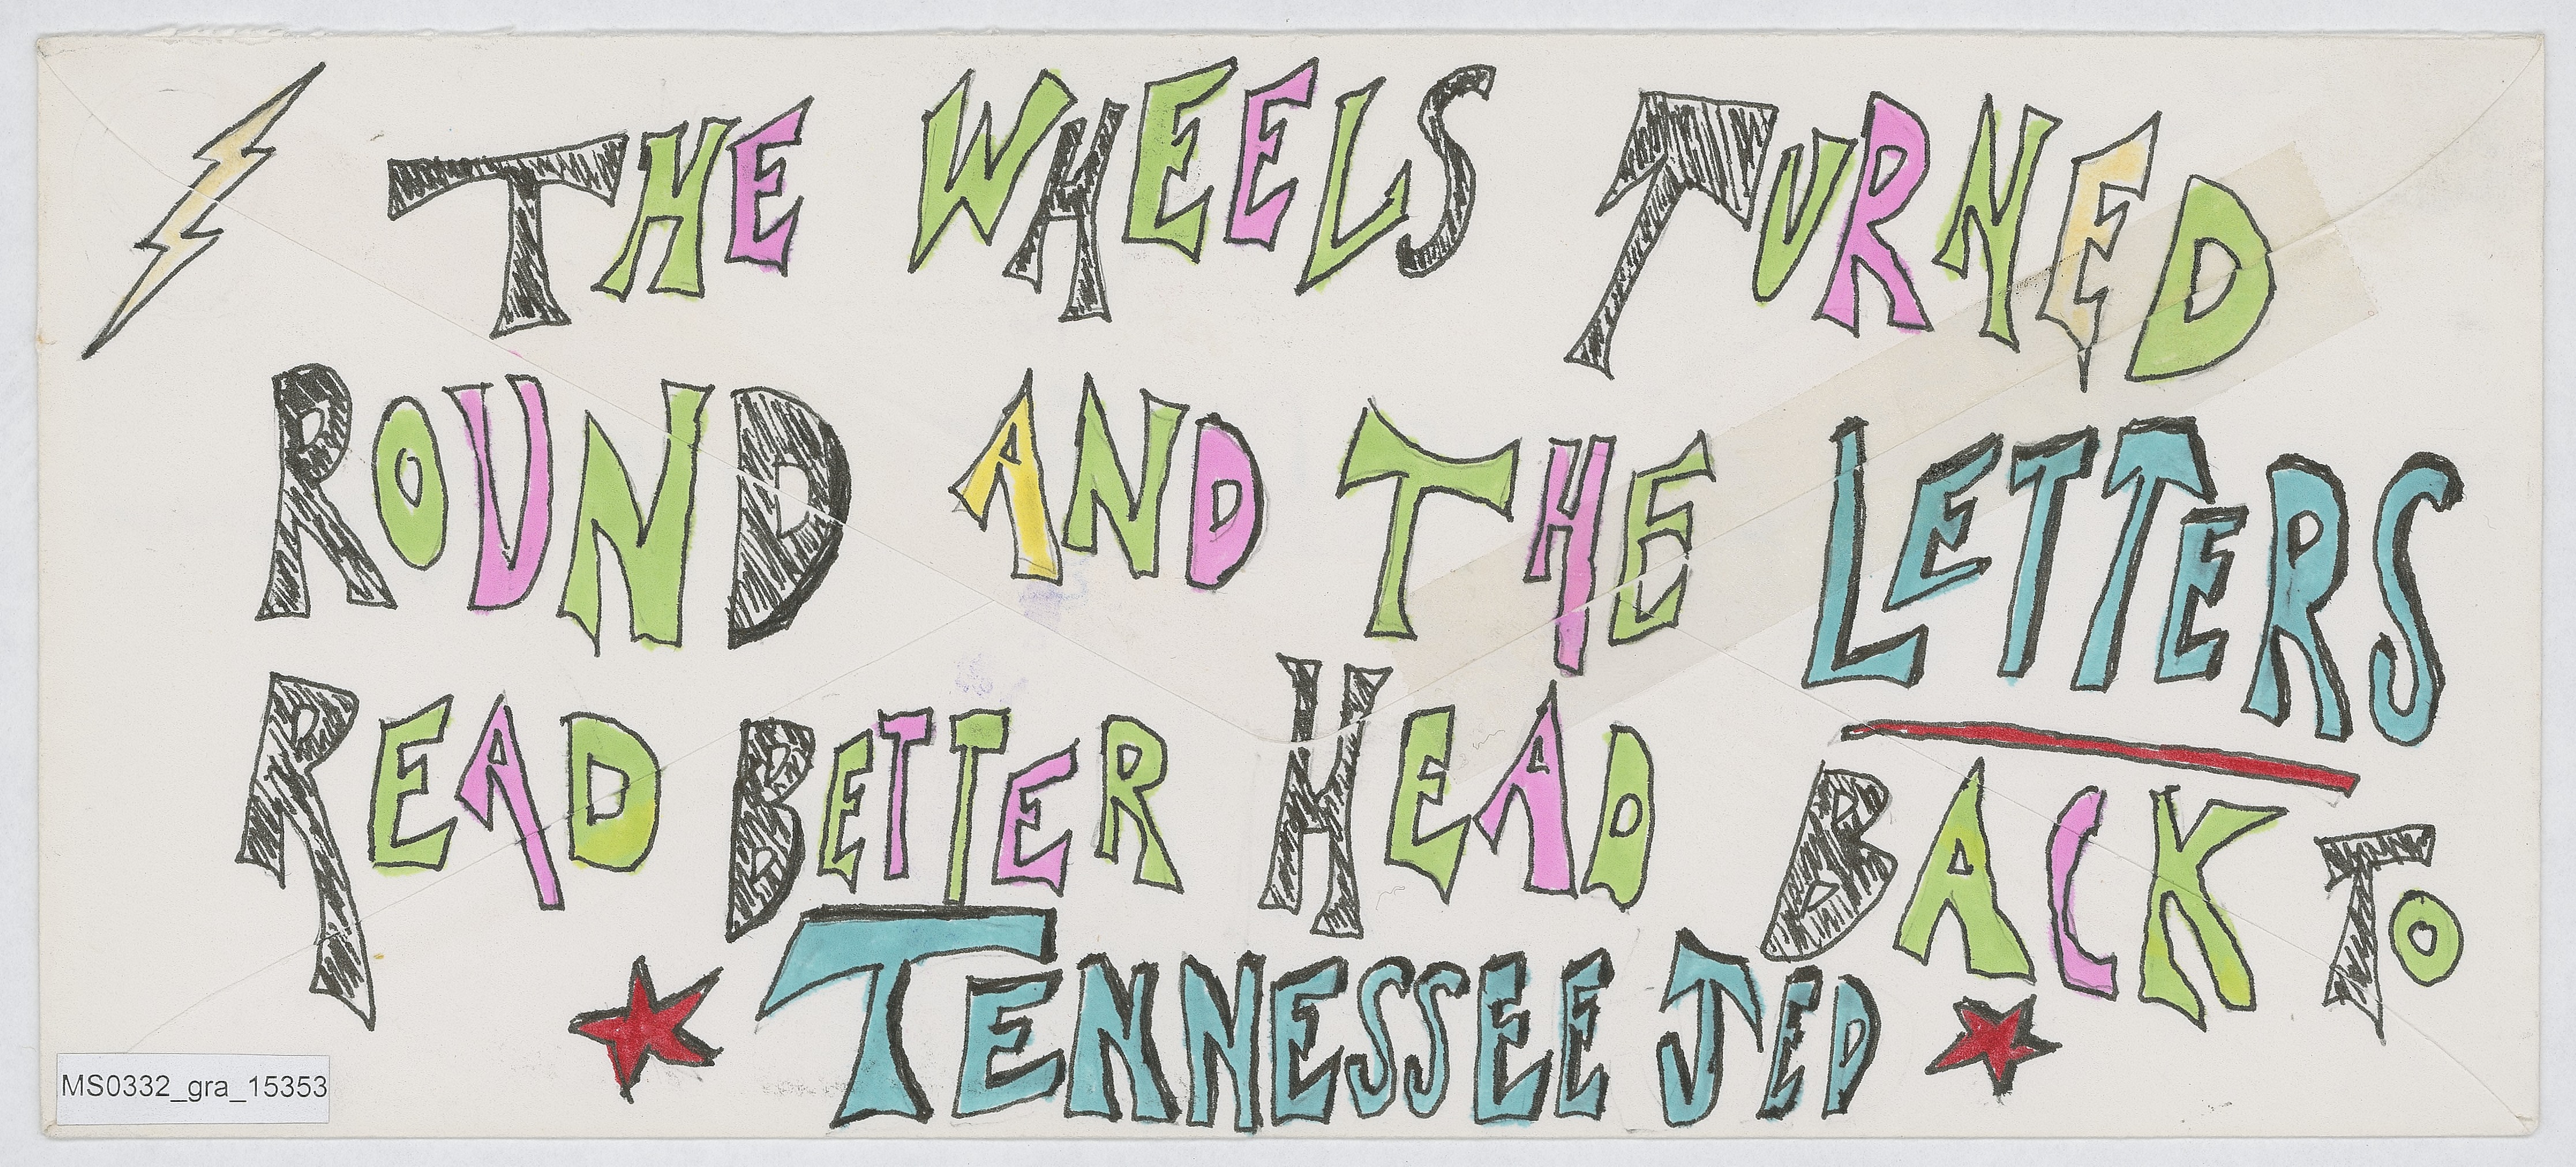 THE WHEELS TURNED
ROUND AND THE LETTERS
READ BETTER HEAD BACK TO
TENNESSEE JED
MS0332_gra_15353